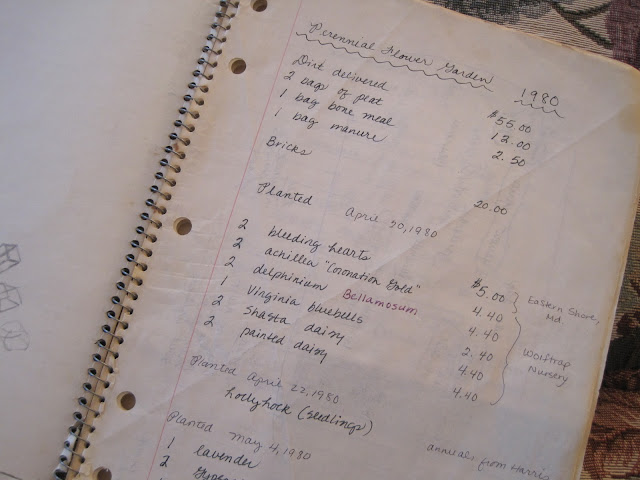 Perennial Flower Garden 1980
Dirt delivered $55.00
2 bags of peat 12.00
1 bag bone meal 2.50
1 bag manure
Bricks 20.00
Planted April 20, 1980
2 bleeding hearts $5.00 Eastern Shore, Md
2 achillea "Coronation Gold" 4.40
2 delphinium Bellamosum 4.40
1 Virginia bluebells 2.40 Wolftrap Nursery
2 Shasta daisy 4.40
2 painted daisy 4.40
Planted April 22, 1980
hollyhock (seedlings)
Planted May 4, 1980 annuals from Harris
1 lavender
2